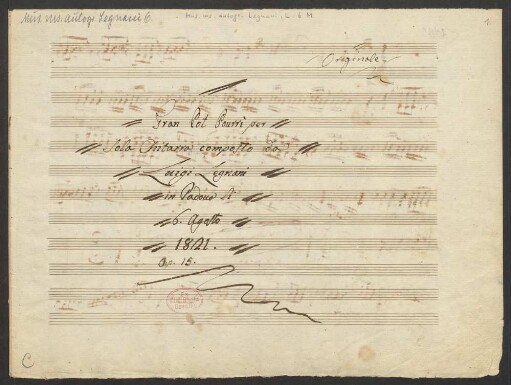 Mus. ms. autogr. Legnani 6.
Mus. ms. autogr. Legnani, L. 6 M
1
Originale
Gran Pot Pourrì per
Sola Chitarra composto da
Luigi Legnani
in Padova li
6. Agosto
1821.
Op. 15.
C